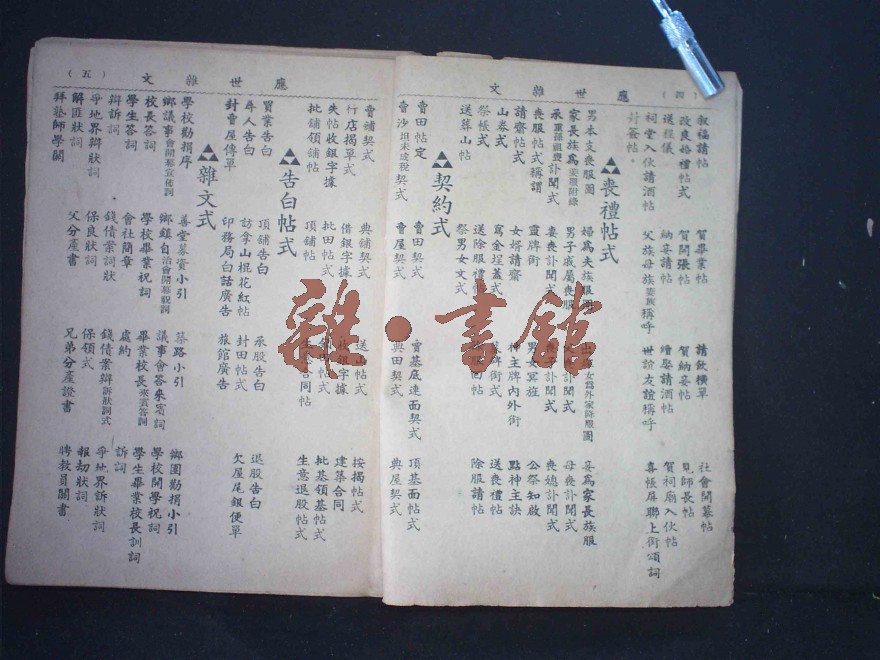 應世雜文
(四)
敘福請帖 賀畢業帖 請飲橫單 社會開幕帖
改良婚禮帖式 賀開張帖 賀納妾帖 見師長帖
送程儀 納妾請帖 續娶請酒帖 賀祠廟入伙帖
祠堂入伙請酒帖 父族母族妻族稱呼 世誼友誼稱呼 喜帳屏聯上街頌詞
封簽帖
喪禮帖式
男本支喪服圖 婦為夫族服圖 妾為家長族服
家長族為妾服附錄 男子戚屬喪服 母喪訃聞式
承重孫祖喪訃聞式 妻喪訃聞式 喪媳訃聞式
喪服帖式稱謂 靈牌銜 男女冥旌 公祭知啟
請齋帖式 女婿請齋 神主牌內外銜 點神主訣
山券式 寫金埕蓋式 送喪禮帖
祭帳式 送除服禮帖 除服請帖
送葬山帖 祭男女文式
契約式
賣田帖定 賣田契式 賣基底連面契式 頂基面帖式
賣沙坦未成稅契式 賣屋契式 典田契式 典屋契式
應世雜文
(五)
賣舖契式 典舖契式 送山帖式 按揭帖式
行店揭單式 借銀字據 收銀字據 建築合同
失帖收銀字據 批田帖式 領田帖式 批基領基帖式
批舖領舖帖 頂舖帖 生意合同帖 生意退股帖式
告白帖式
買業告白 頂舖告白 承股告白 退股告白
尋人告白 訪拿山棍花紅帖 封田帖式 欠屋尾銀便單
封賣屋傳單 印務局白話廣告 旅館廣告
雜文式
學校勸捐序 善堂募資小引 築路小引 鄉團勸捐小引
鄉議事會開幕宣佈詞 鄉鎮自治會開幕祝詞 議事會答來賓詞 學校開學祝詞
校長答詞 學校畢業祝詞 畢業校長來賓答詞 學生畢業校長訓詞
學生答詞 會社簡章 處約 訴詞
辯訴詞 錢債案詞狀 錢債案辯訴狀詞式 爭地界訴狀詞
爭地界辯狀詞 保良狀詞 保領式 報刧狀詞
解匪狀詞 父分產書 兄弟分產證書 聘教員關書
拜塾師學關
雜·書館